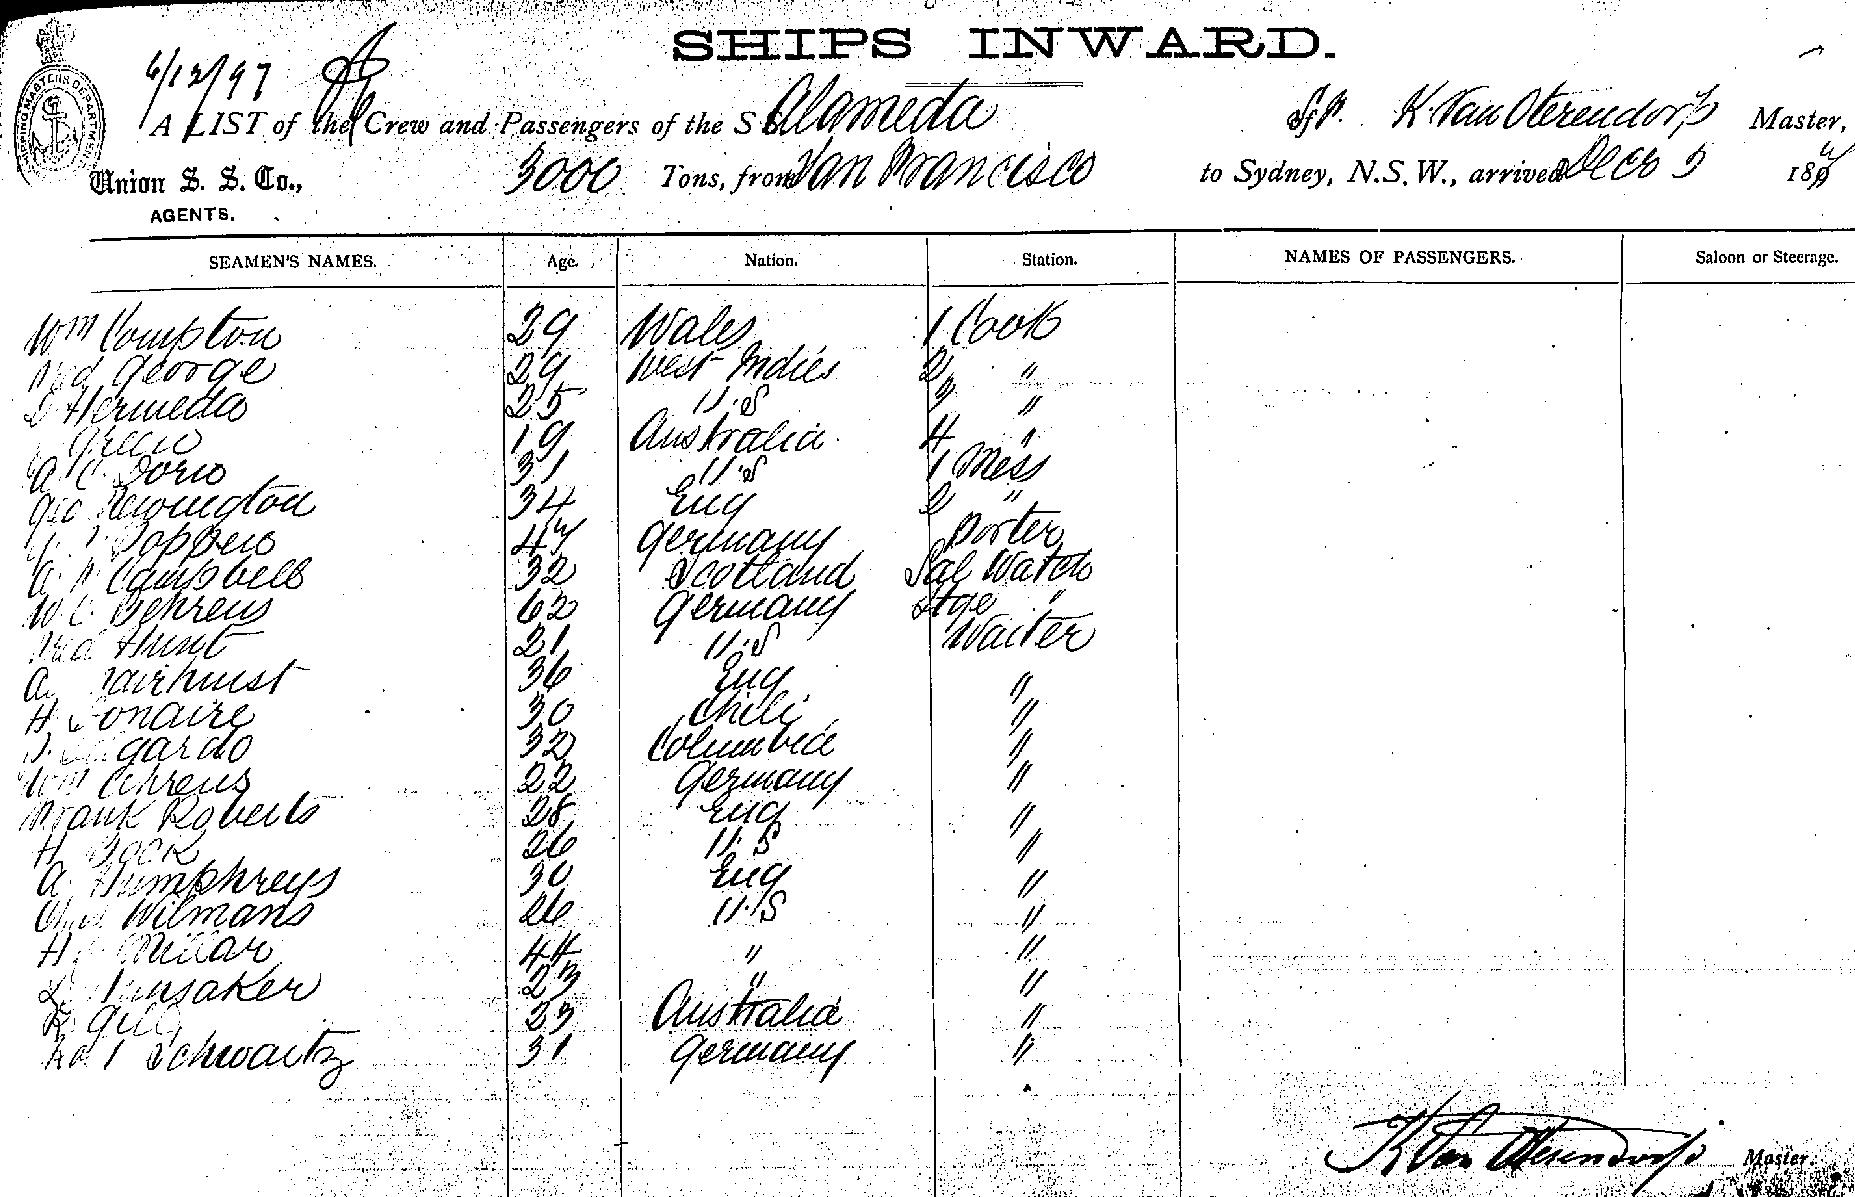 SHIPS INWARD.
6/12/97
A LIST of the Crew and Passengers of the S S Alameda of S.F. K. Van Oterendorp Master,
Union S. S. Co., AGENTS. 3000 Tons, from San Francisco to Sydney, N.S.W., arrived Decr 5 1897
SEAMEN'S NAMES. Age. Nation. Station. NAMES OF PASSENGERS. Saloon or Steerage.
Wm Compton 29 Wales 1 Cook
Fred George 29 West Indies 2 "
Hermeda 25 U.S 3 "
Green 19 Australia 4 "
A. C. Dorio 31 U.S 1 Mess
Geo Newington 34 Eng 2 "
Poppen 47 Germany Porter
A. Campbell 32 Scotland Sal Watch
W. C. Behrens 62 Germany Stge "
Fred Hunt 21 U.S Waiter
A. Fairhurst 36 Eng "
H. Bonaire 30 Chili "
gardo 32 Columbia "
Wm Ahrens 22 Germany "
Frank Roberts 28 Eng "
H Bock 26 U.S "
A. Humphreys 30 Eng "
Chas Wilmans 26 U.S "
H. Millar 44 " "
L. Hunsaker 23 " "
R. Gill 23 Australia "
Schwartz 31 Germany "
K Van Oterendorp Master.